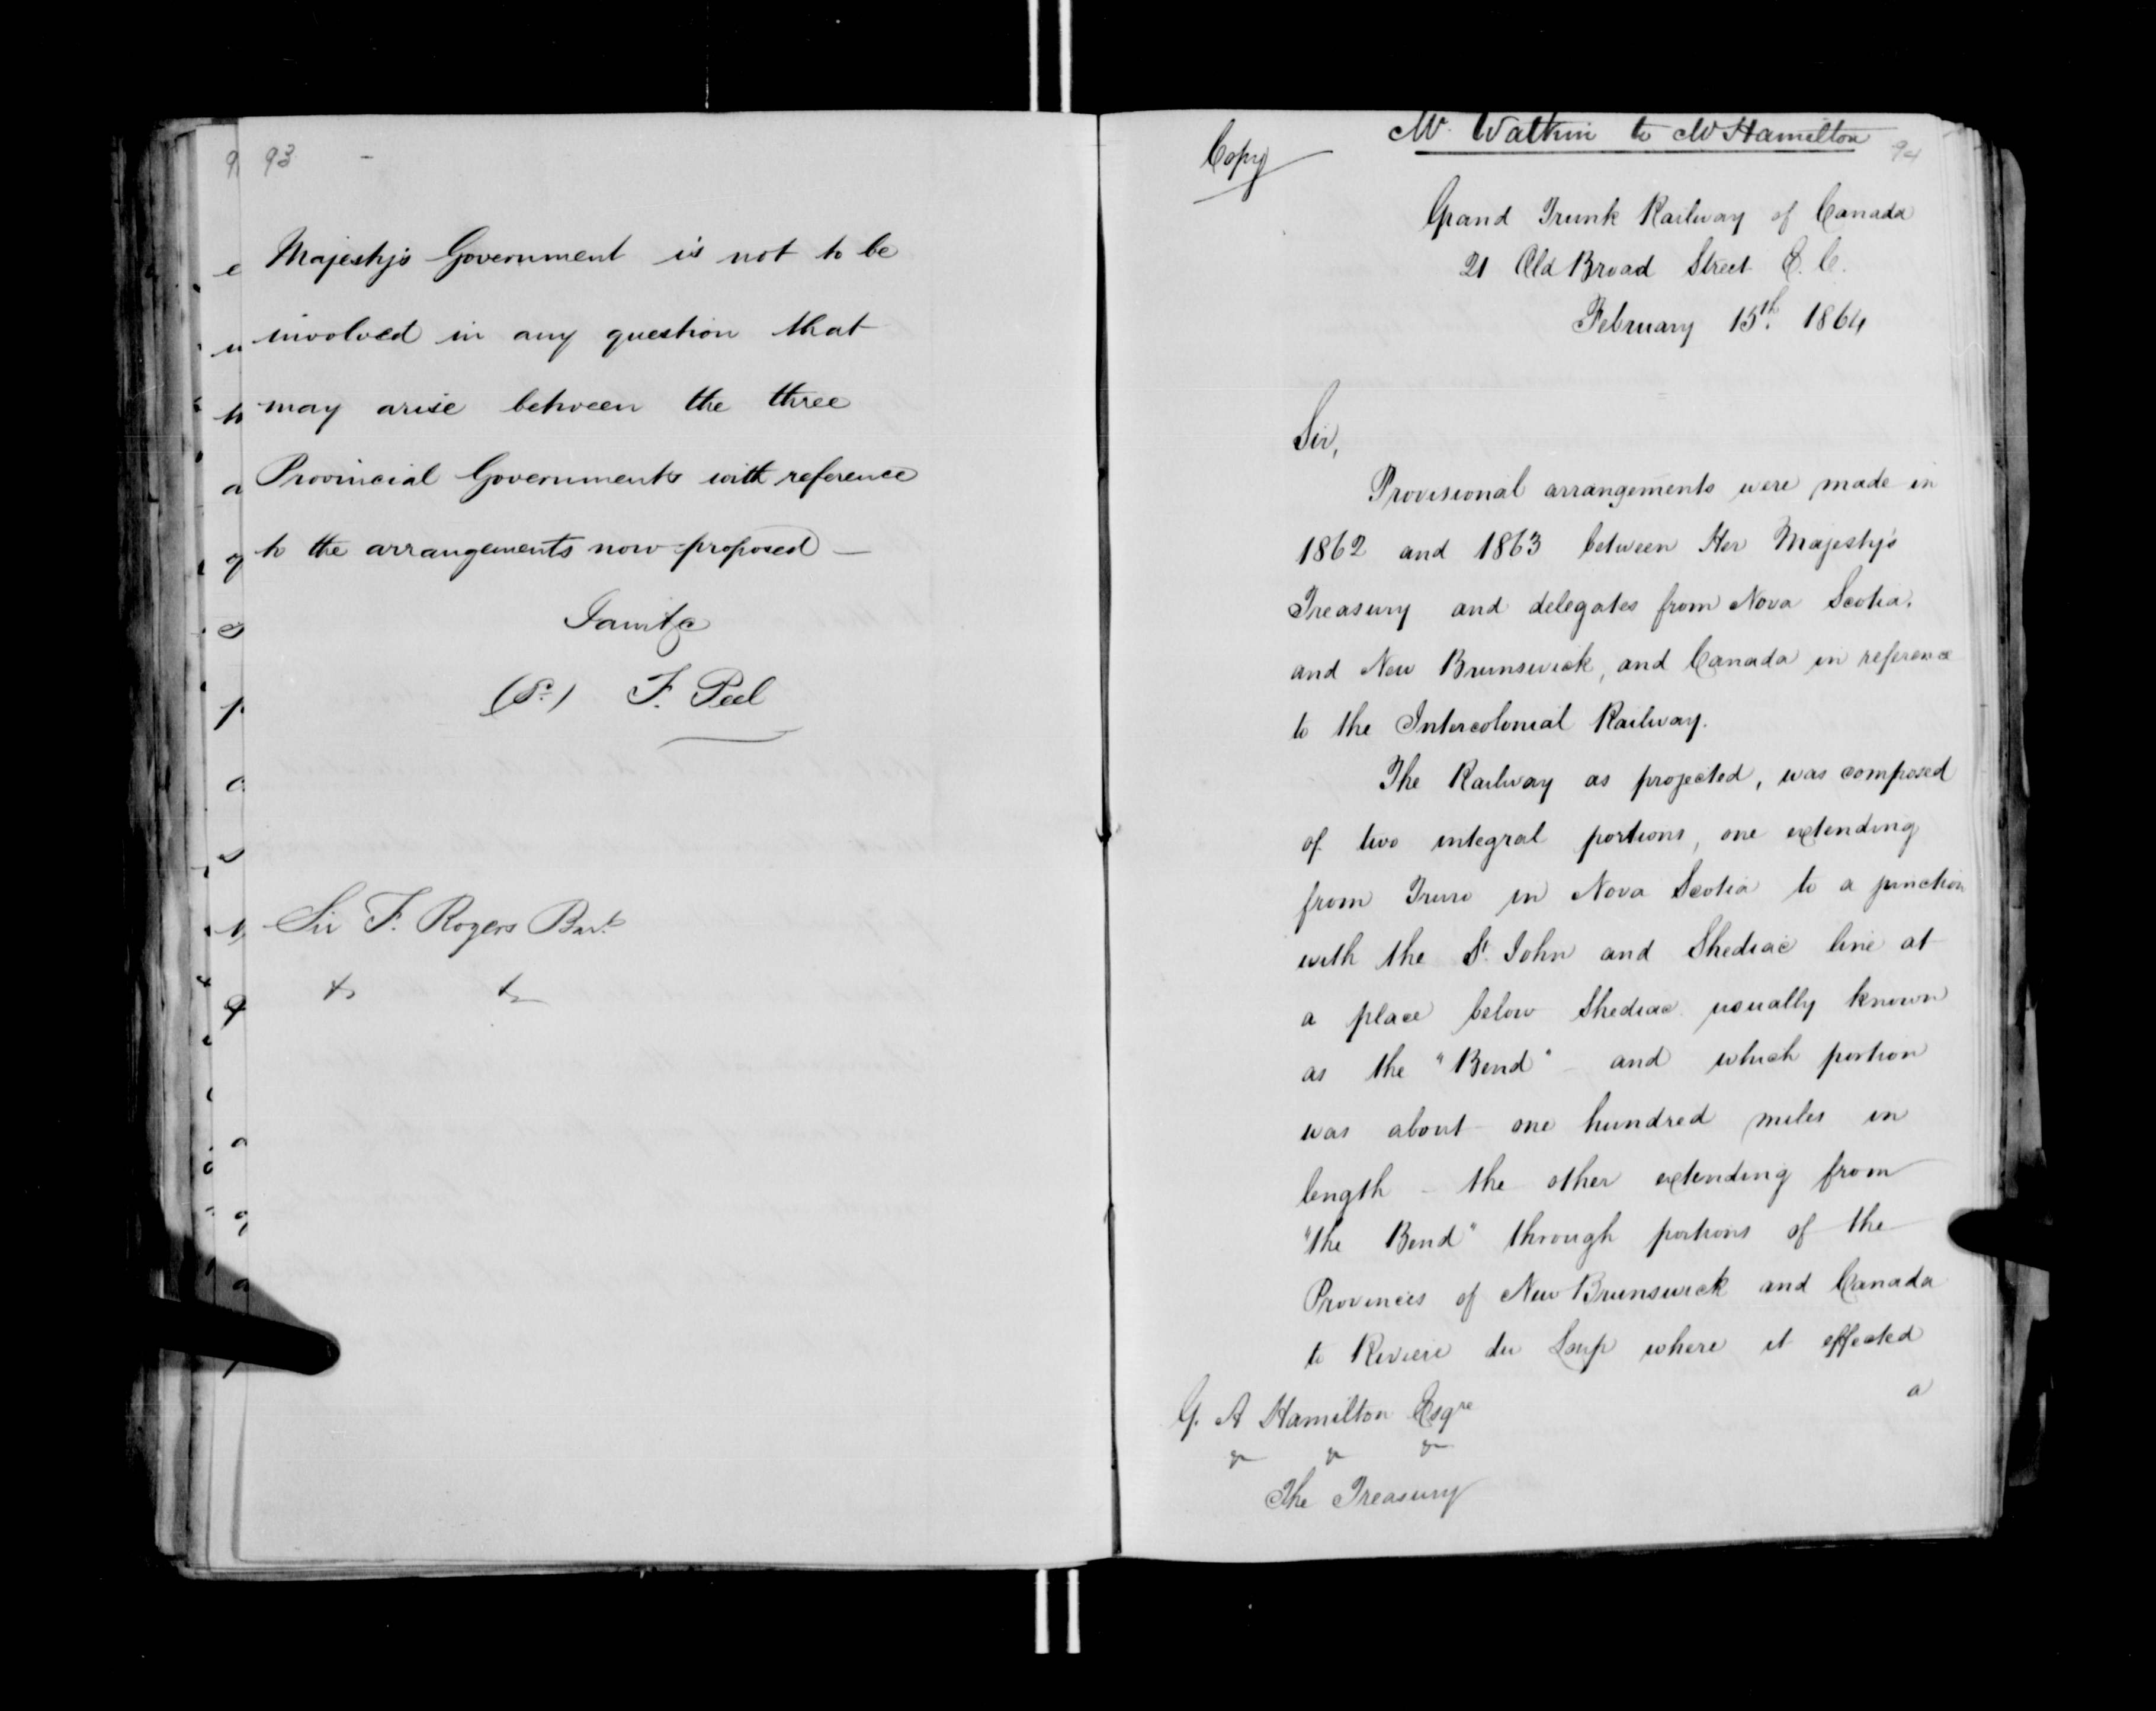 93
Majesty's Government is not to be
involved in any question that
may arise between the three
Provincial Governments with reference
to the arrangements now proposed —
I am &c
F. Peel
Sir F. Rogers Bart
&c &c
94
Mr Watkin to Mr Hamilton
Copy
Grand Trunk Railway of Canada
21 Old Broad Street E.C.
February 15th. 1864
Sir,
Provisional arrangements were made in
1862 and 1863 between Her Majesty's
Treasury and delegates from Nova Scotia,
and New Brunswick, and Canada in reference
to the Intercolonial Railway.
The Railway as projected, was composed
of two integral portions, one extending
from Truro in Nova Scotia to a junction
with the St. John and Shediac line at
a place below Shediac usually known
as the "Bend" – and which portion
was about one hundred miles in
length – the other extending from
"the Bend" through portions of the
Provinces of New Brunswick and Canada
to Riviere du Loup where it effected
a
G. A Hamilton Esqre
&c &c &c
The Treasury